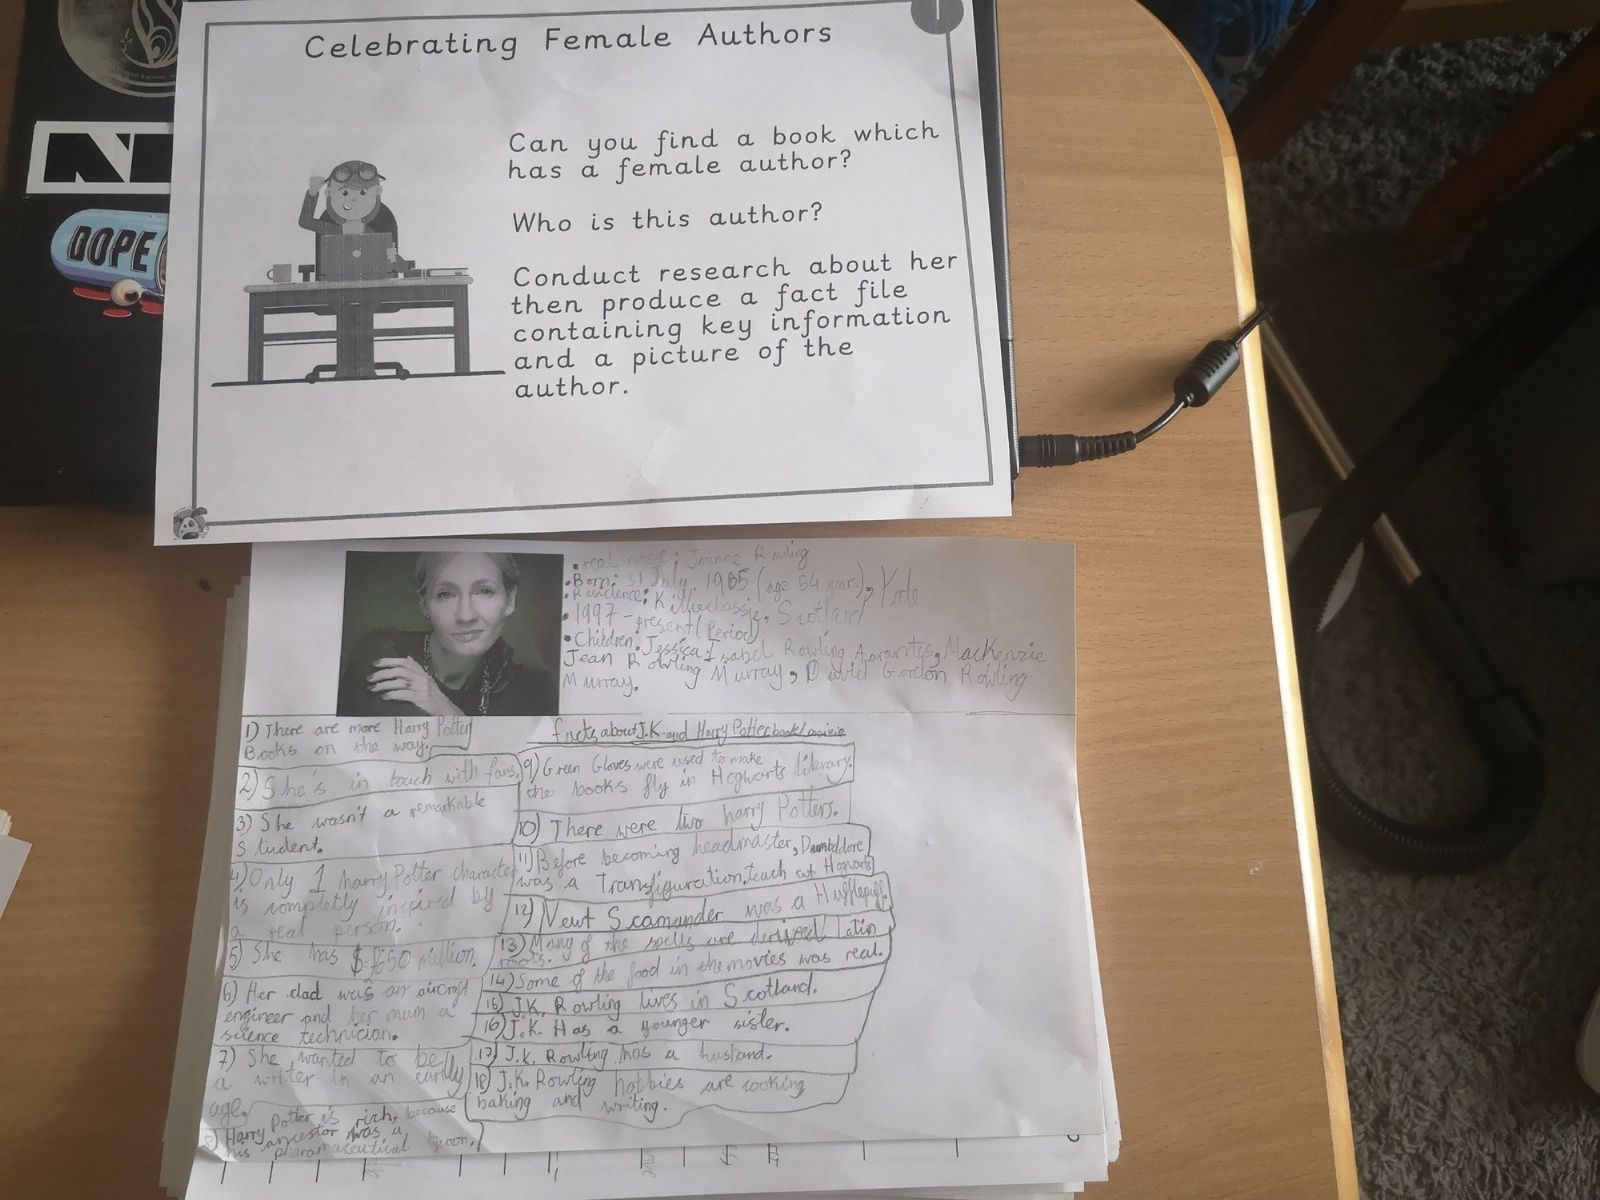 1
Celebrating Female Authors
Can you find a book which
has a female author?
Who is this author?
Conduct research about her
then produce a fact file
containing key information
and a picture of the
author.
DOPE
• real name: Joanne Rowling
• Born: 31 July, 1965 (age 54 years), Yate
• Residence: Killiechassie, Scotland
• 1997 - present (Period)
• Children: Jessica Isabel Rowling Arantes, MacKenzie
Jean Rowling Murray, David Gordon Rowling
Murray.
facts about J.K and Harry Potter book/movie
1) There are more Harry Potter
Books on the way.
2) She's in touch with fans.
3) She wasn't a remarkable
student.
4) Only 1 harry Potter character
is completly inspired by
a real person.
5) She has $650 million.
6) Her dad was an aircraft
engineer and her mum a
science technician.
7) She wanted to be
a writer in an early
age.
8) Harry Potter is rich, because
his ancestor was a
pharamaceutical tycoon.
9) Green Gloves were used to make
the books fly in Hogwarts library.
10) There were two harry Potters.
11) Before becoming headmaster, Dumbldore
was a Transfiguration teach at Hogwarts
12) Newt Scamander was a Hufflepuff.
13) Many of the spells are derived latin
roots.
14) Some of the food in the movies was real.
15) J.K. Rowling lives in Scotland.
16) J.K. Has a younger sister.
17) J.K. Rowling has a husband.
18) J.K. Rowling hobbies are cooking
baking and writing.